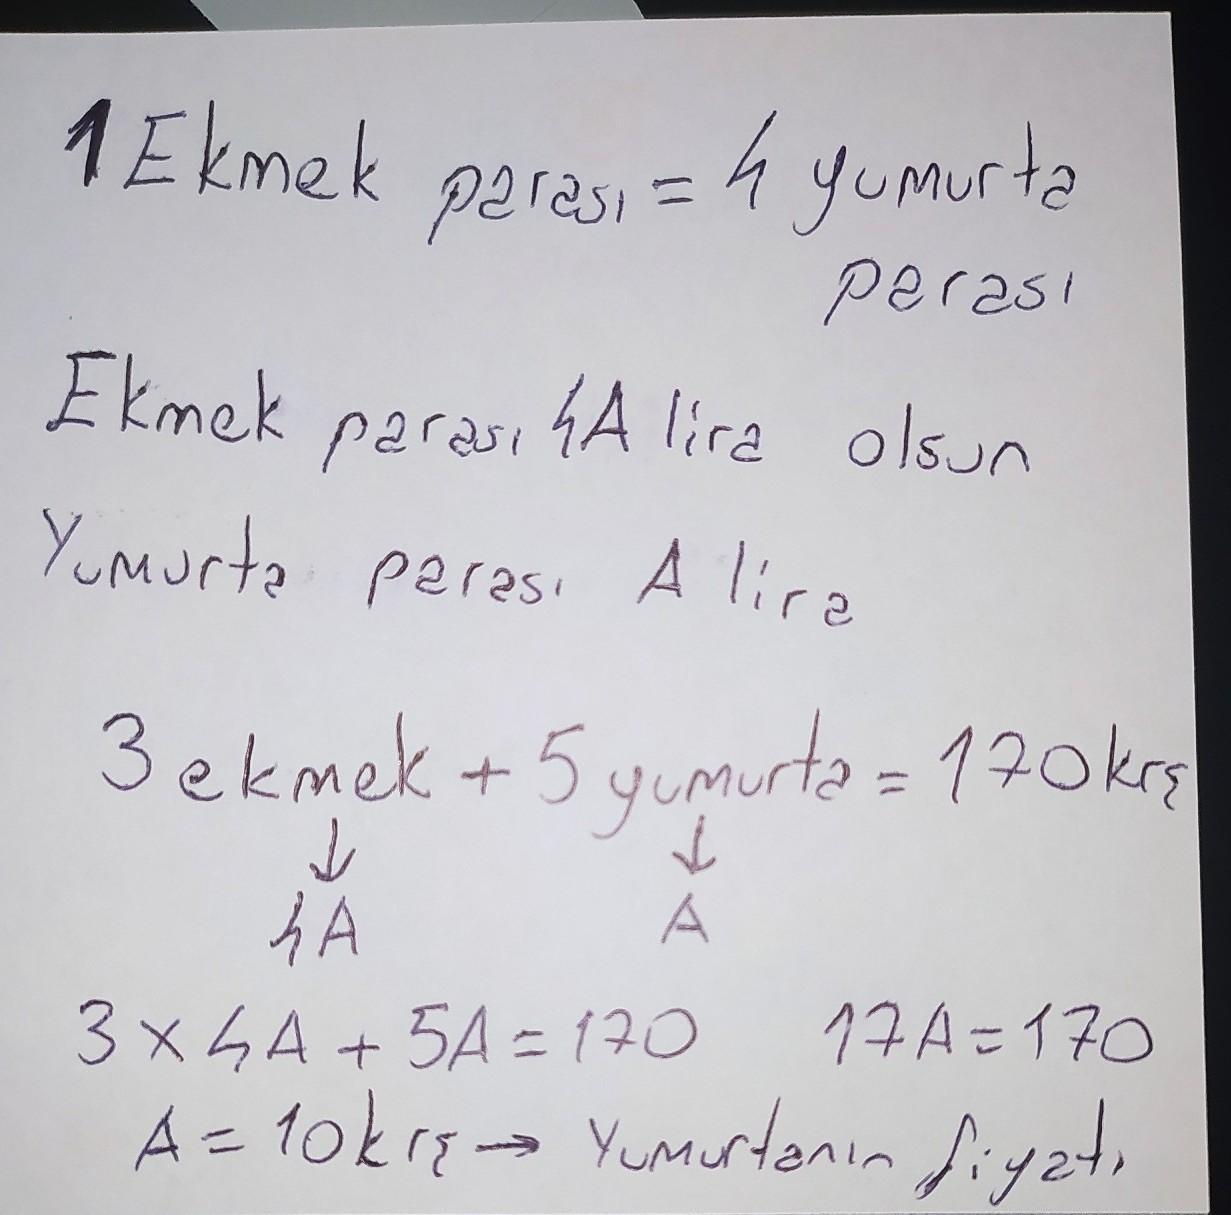 1 Ekmek parası = 4 yumurta
parası
Ekmek parası 4A lira olsun
Yumurta parası A lira
3 ekmek + 5 yumurta = 170 krş
↓ ↓
4A A
3 x 4A + 5A = 170 17A = 170
A = 10 krş → Yumurtanın fiyatı